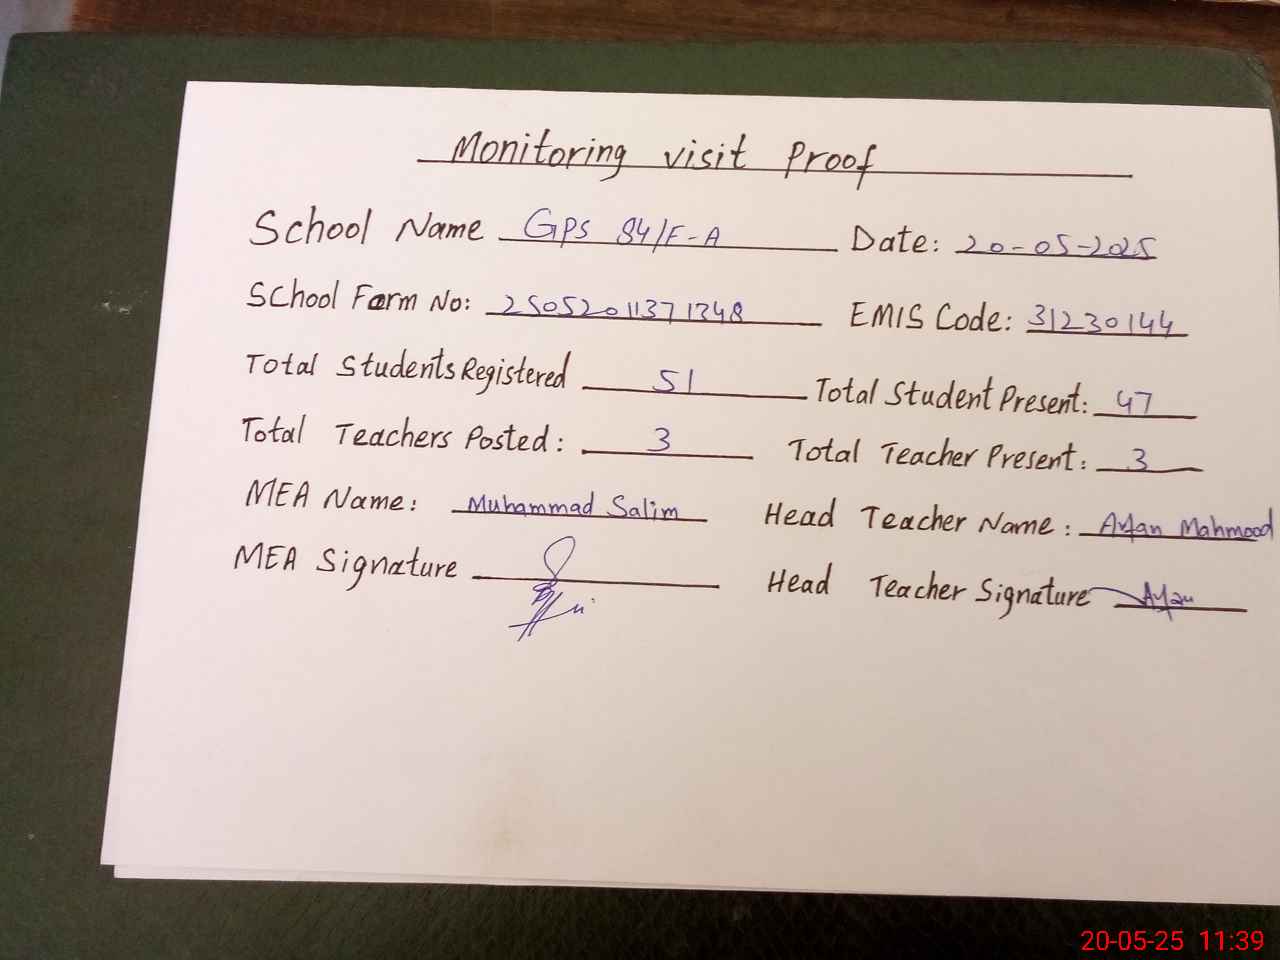 Monitoring visit Proof
School Name GPS 84/F-A Date: 20-05-2025
School Form No: 25052011371348 EMIS Code: 31230144
Total Students Registered 51 Total Student Present: 47
Total Teachers Posted: 3 Total Teacher Present: 3
MEA Name: Muhammad Salim Head Teacher Name: Mahmood
MEA Signature Head Teacher Signature
20-05-25 11:39